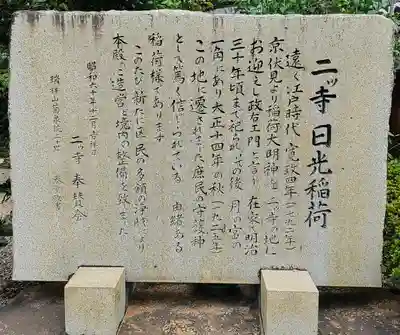 二ッ寺日光稲荷
遠く江戸時代、寛政四年(一七九二年)
京伏見より稲荷大明神を二ッ寺の地に
お迎えし政右ェ門と言う在家で明治
三十年頃まで祀られ、その後、月の宮の
一角にあり大正十四年の秋(一九二五年)
この地に遷されました庶民の守護神
として篤く信じられている 由緒ある
稲荷様であります
このたび新たに区民の多額の浄財により
本殿ご造営と境内の整備を致しました
昭和六十年十二月吉祥日
二ッ寺奉賛会